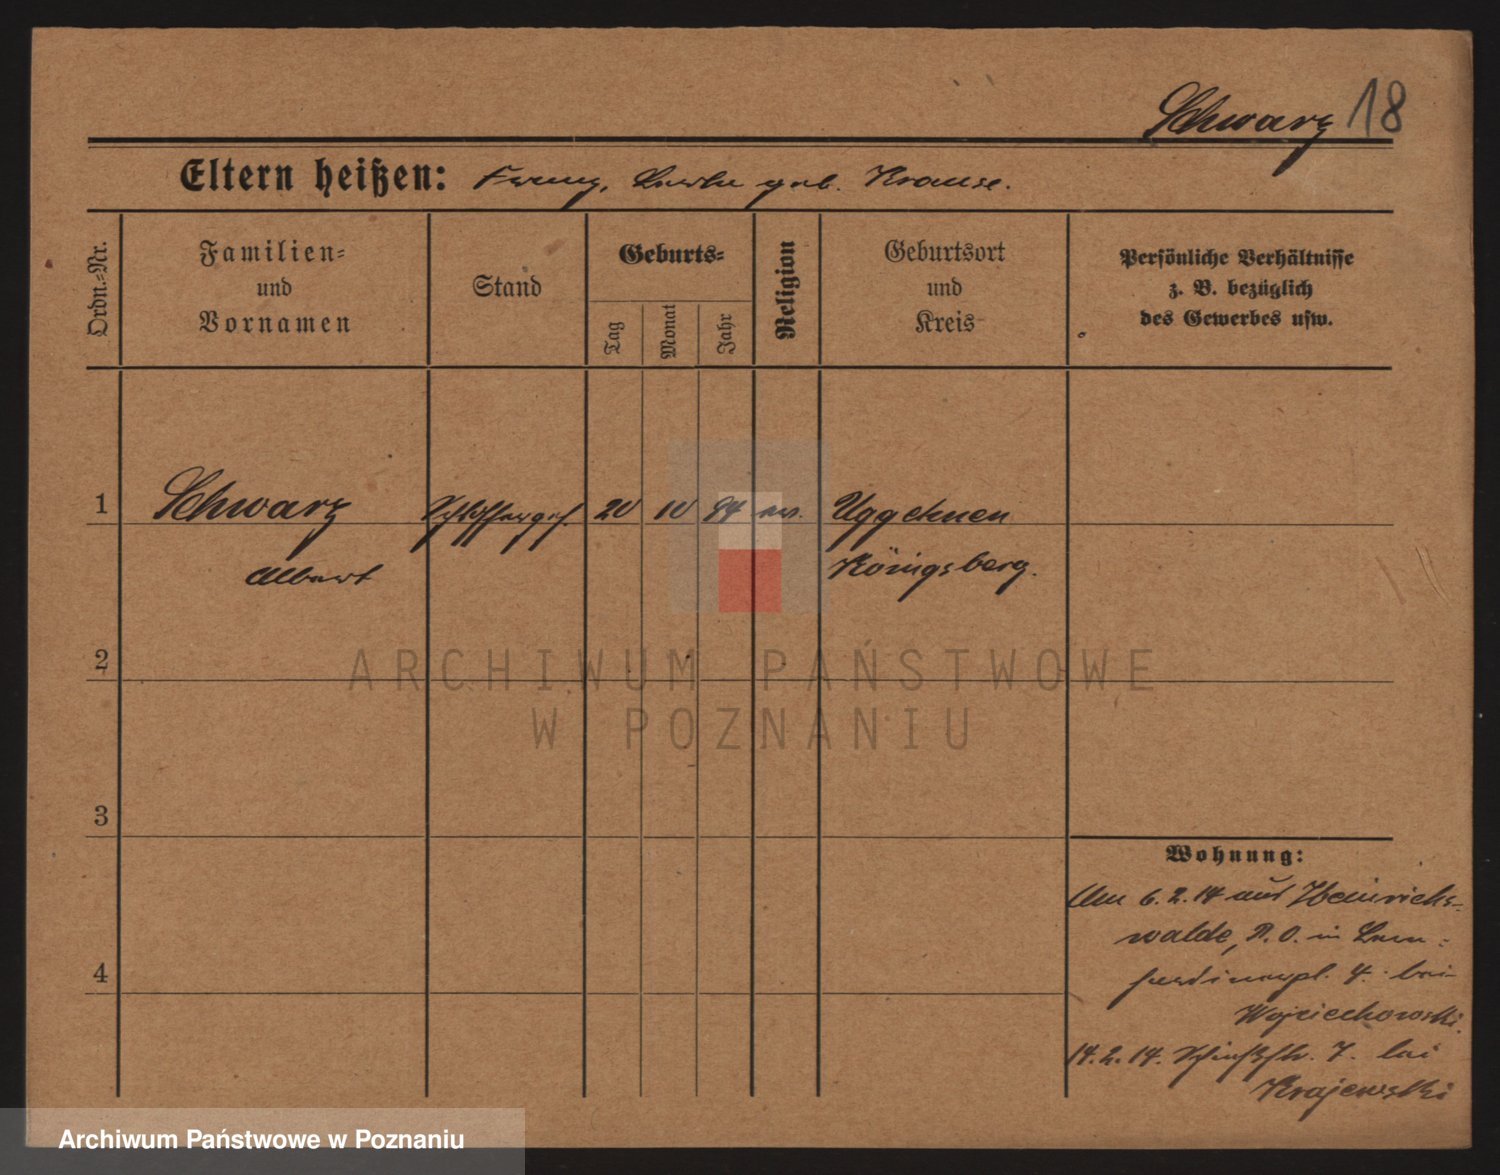 Schwarz 18
Eltern heißen: Franz, geb. Krause.
Ordn.-Nr.
Familien-
und
Vornamen
Stand
Geburts-
Tag
Monat
Jahr
Religion
Geburtsort
und
Kreis
Persönliche Verhältnisse
z. B. bezüglich
des Gewerbes usw.
1 Schwarz Schlosserges. 20 10 94 ev. Uggehnen
Albert Königsberg.
2
3
4
Wohnung:
Am 6. 2. 14 aus Heinrichs-
walde, P. O. in
4. bei
Wojciechowski.
14. 2. 14. 7. bei
Krajewski
ARCHIWUM PAŃSTWOWE
W POZNANIU
Archiwum Państwowe w Poznaniu